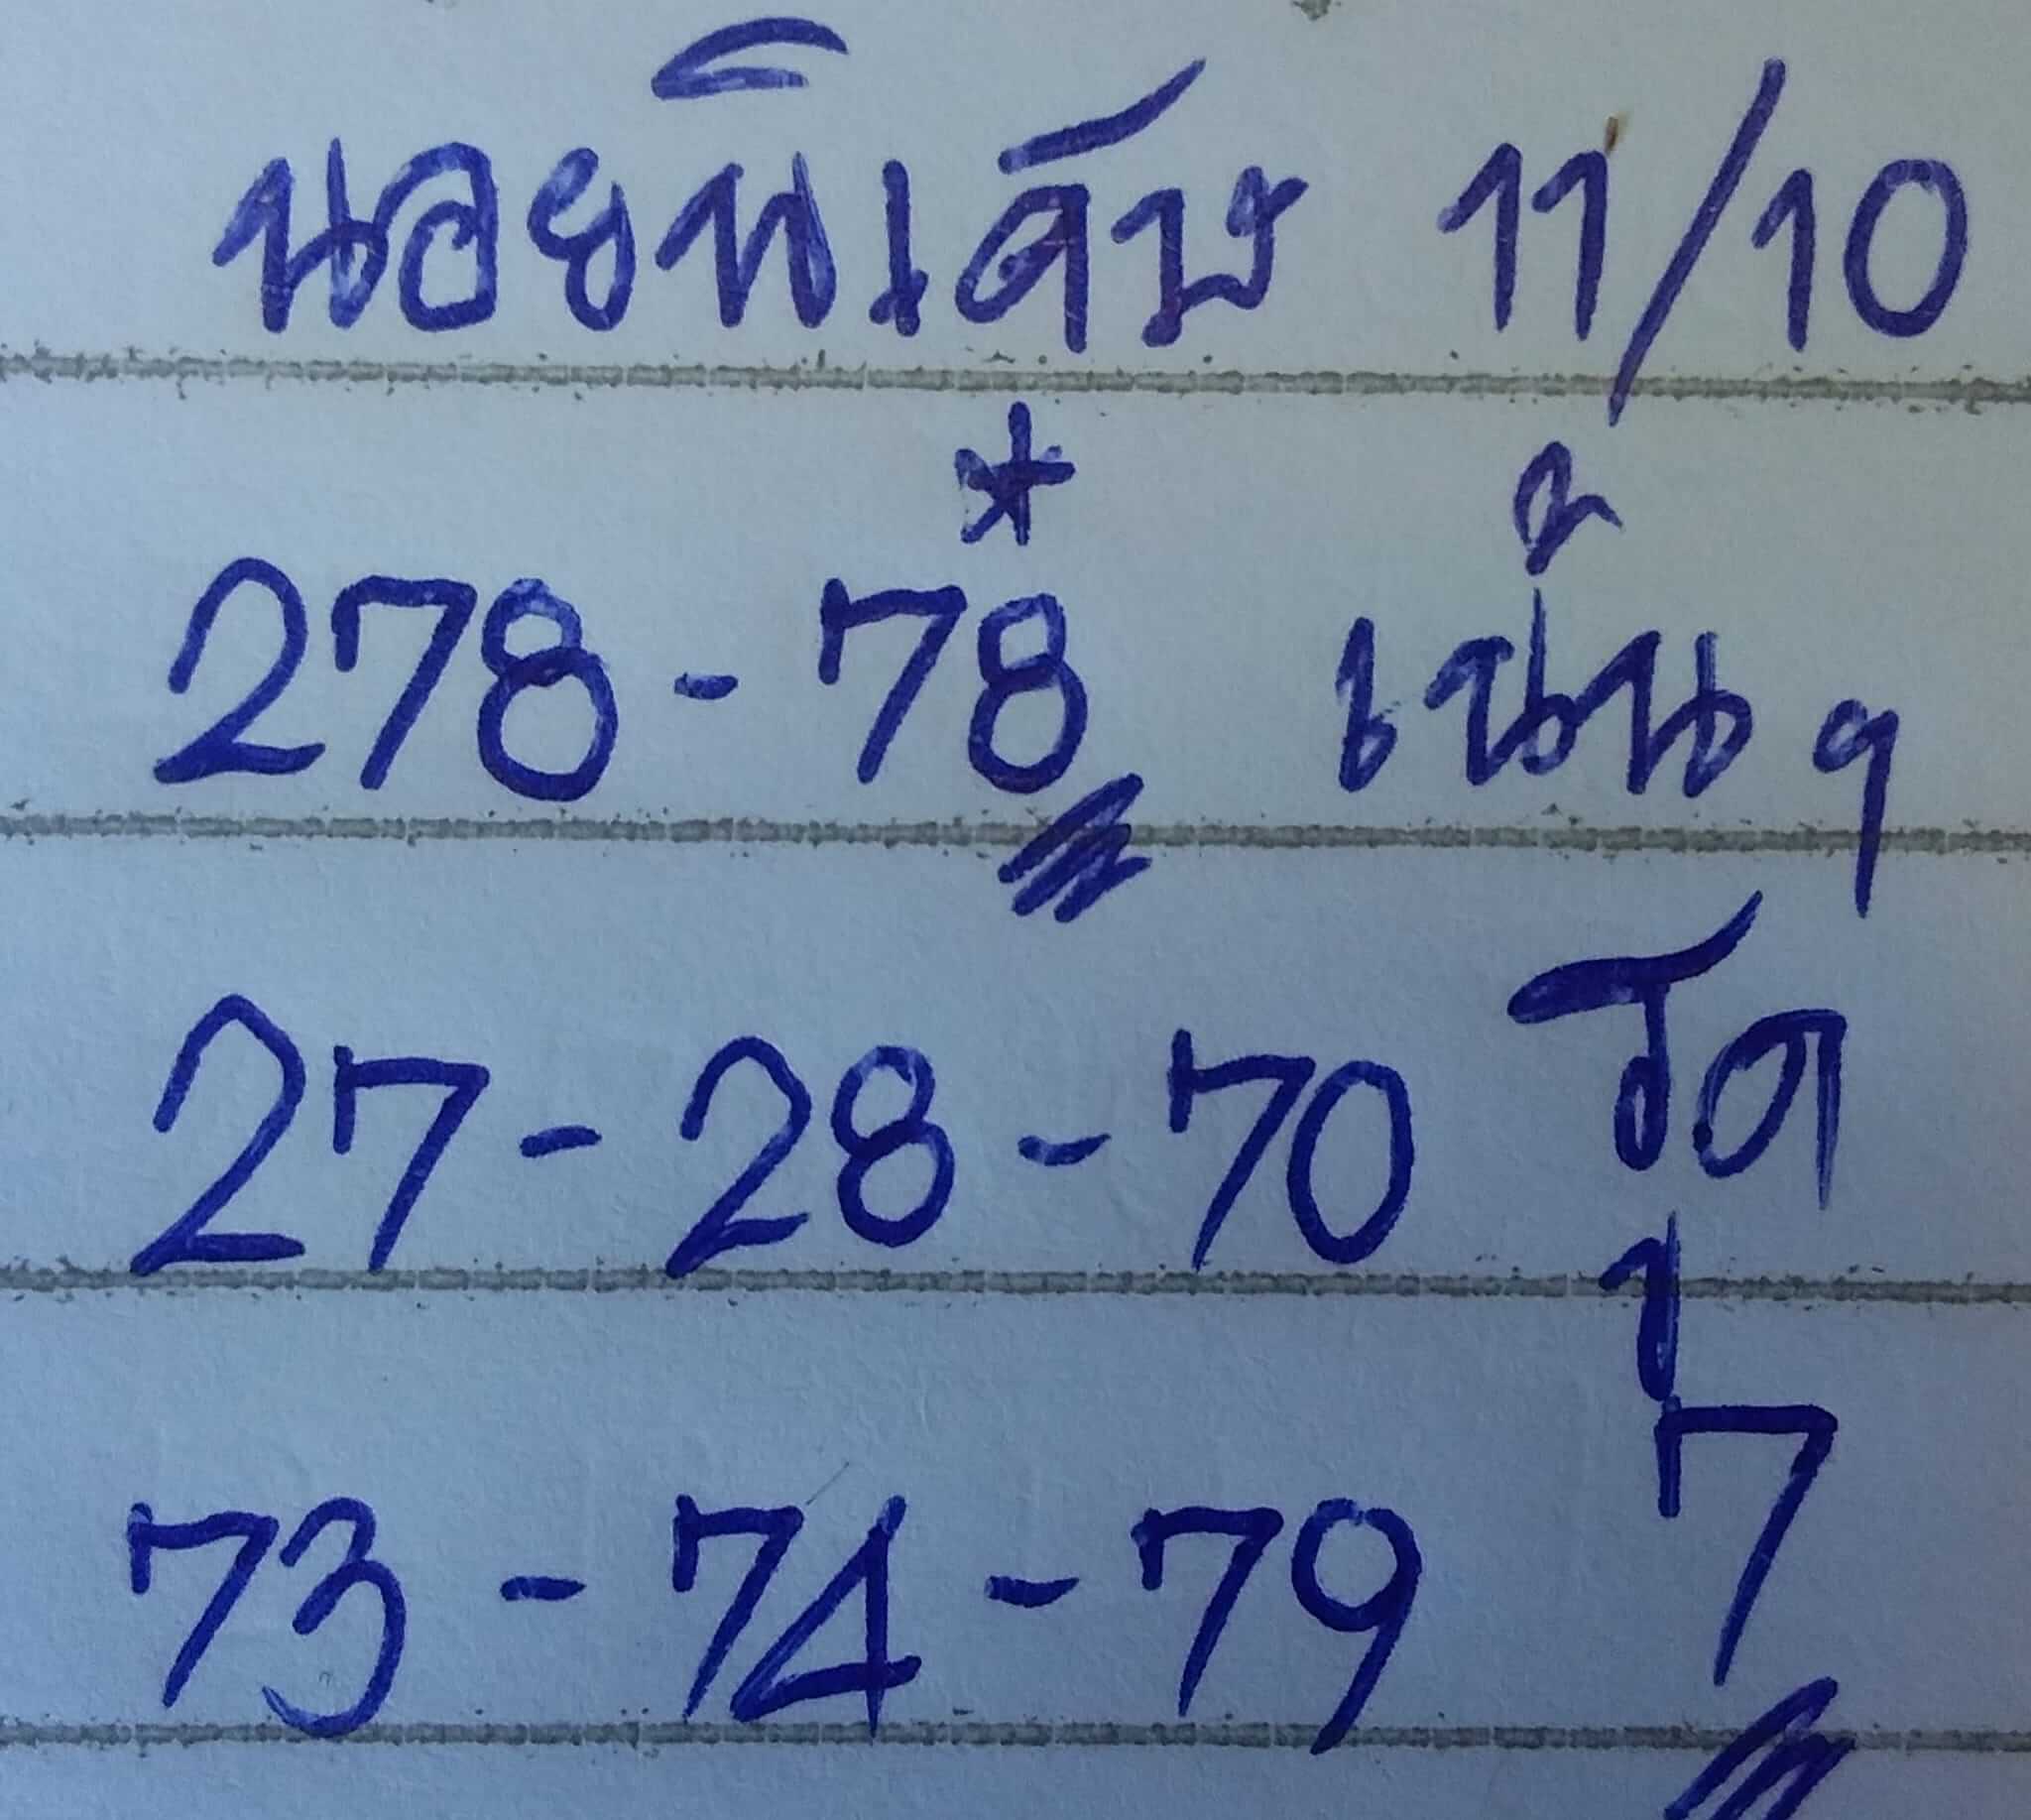 นอยพิเศษ 11/10
*
278 - 78 เน้นๆ
27 - 28 - 70 รูด
73 - 74 - 79 7